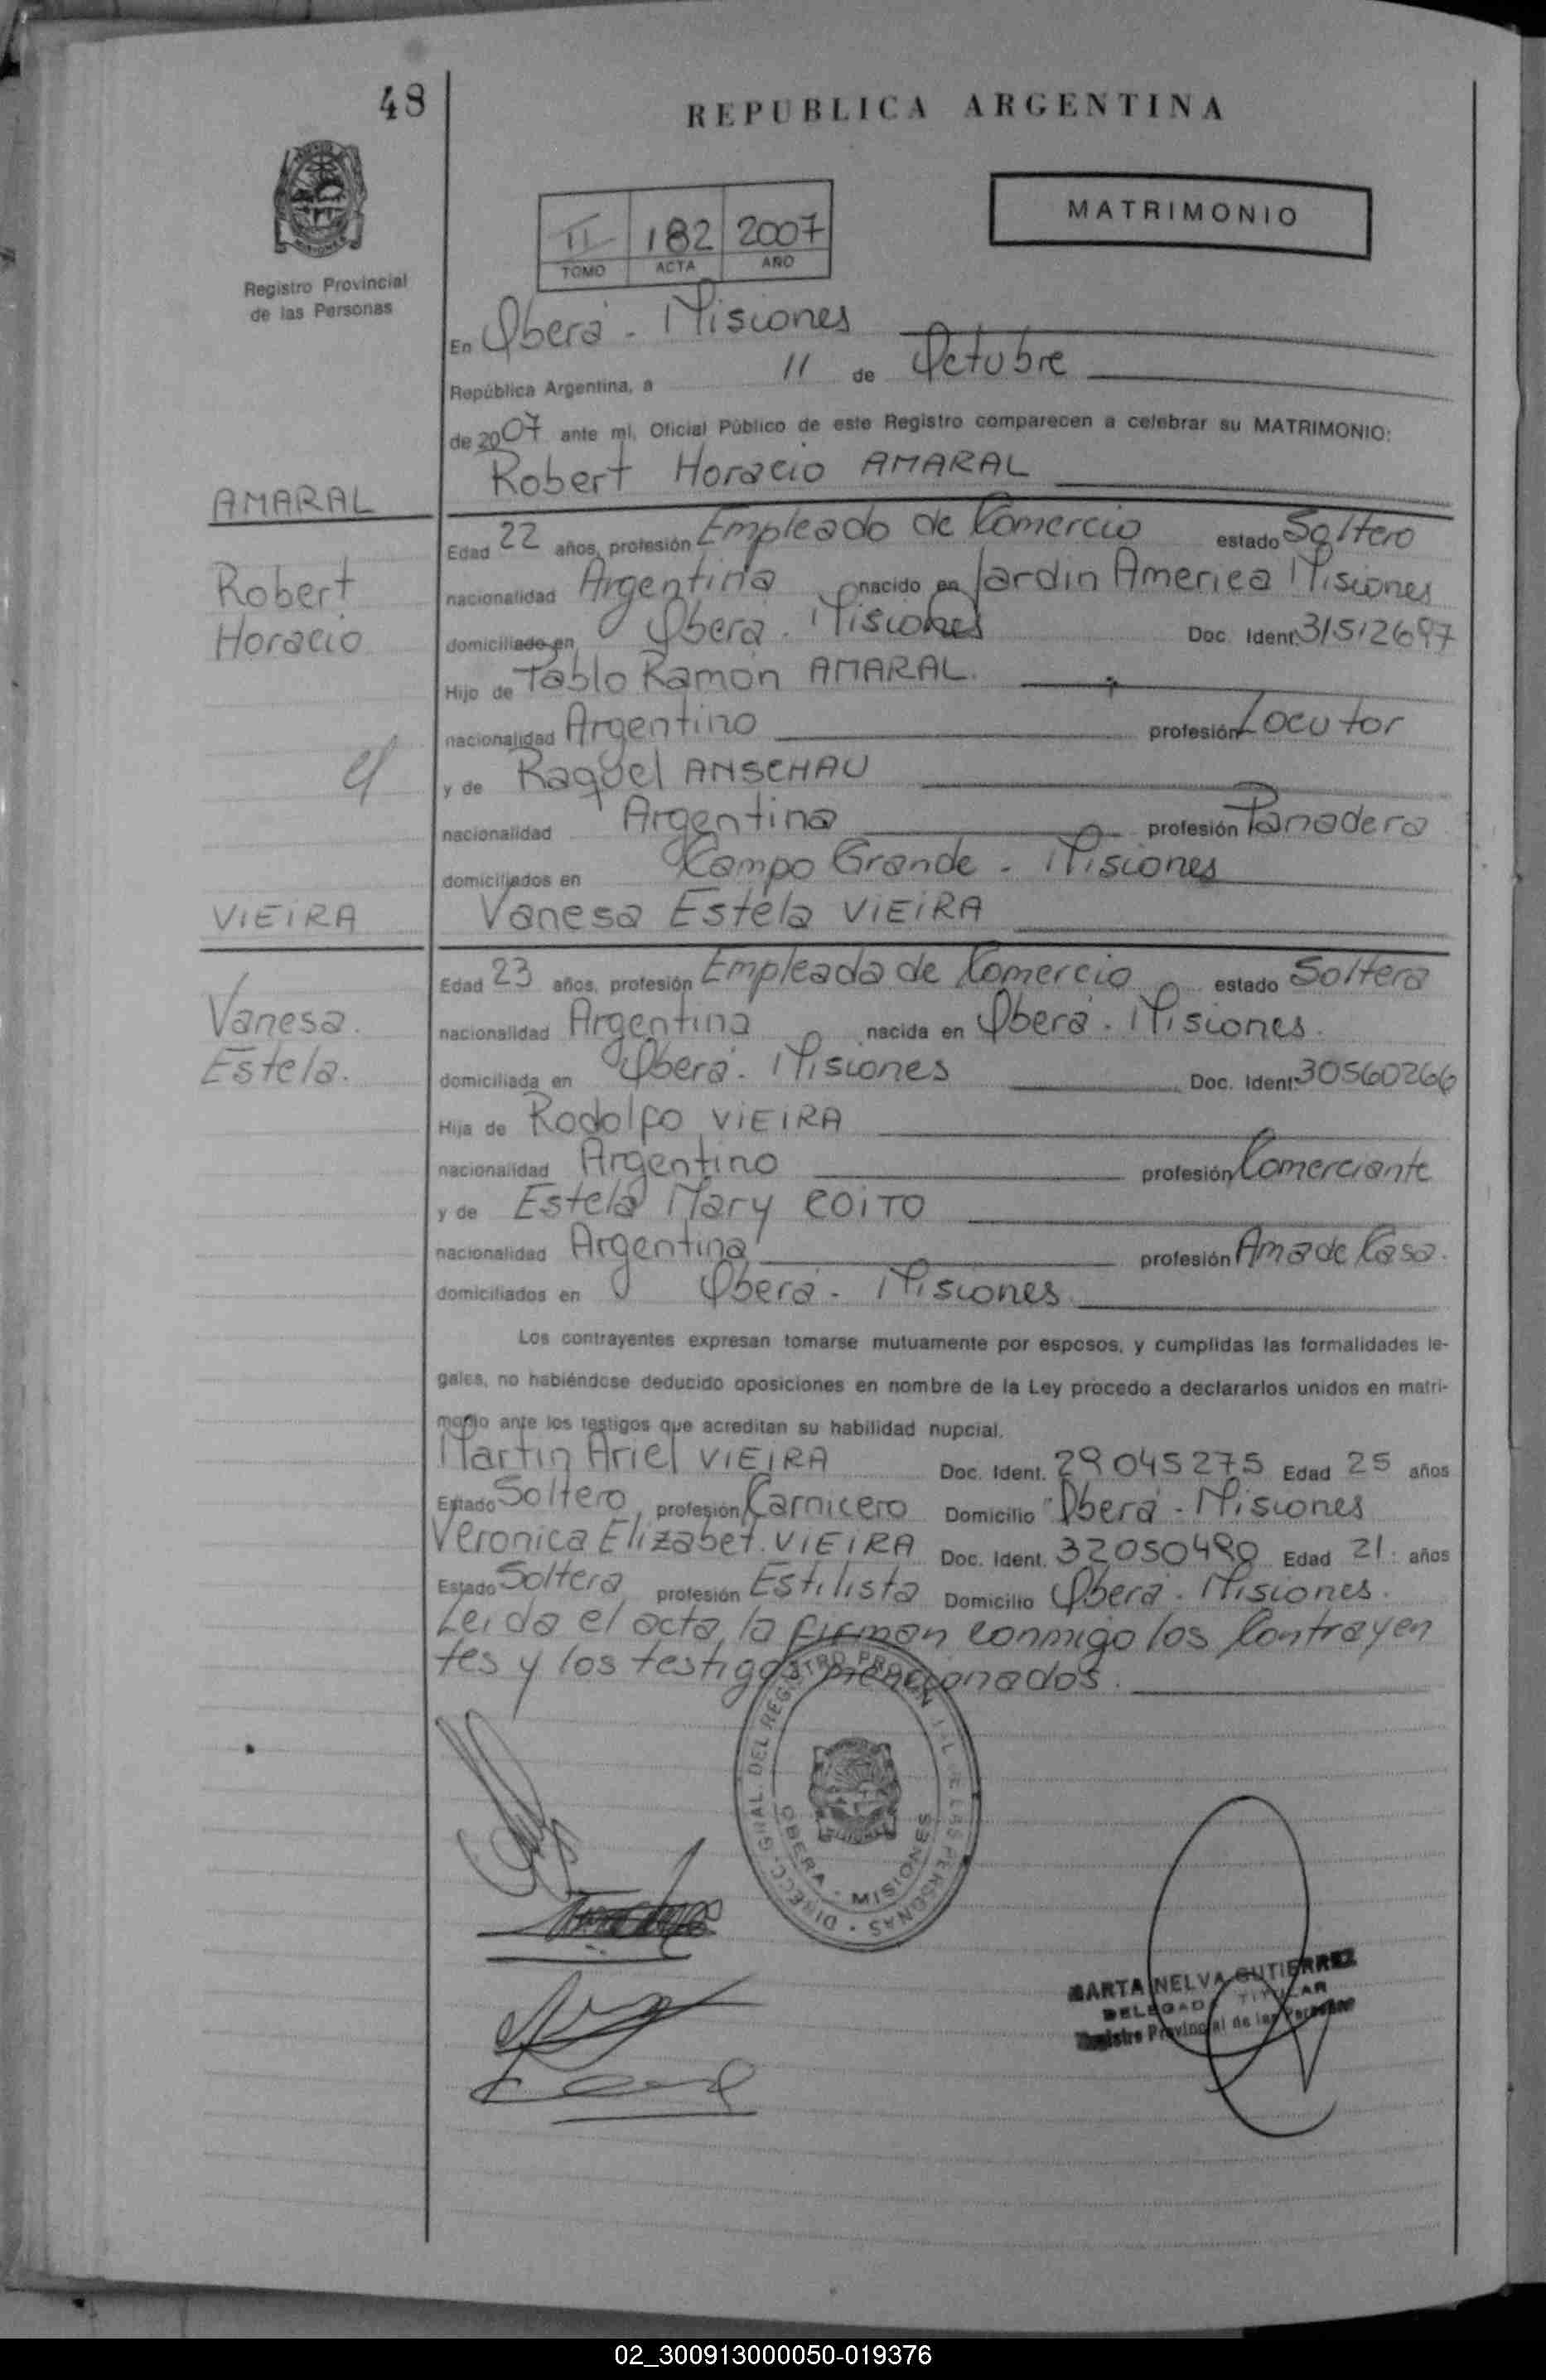 48
REPUBLICA ARGENTINA
MATRIMONIO
II 182 2007
TOMO ACTA AÑO
Registro Provincial
de las Personas
En Oberá - Misiones
República Argentina, a 11 de Octubre
de 2007 ante mí, Oficial Público de este Registro comparecen a celebrar su MATRIMONIO:
Robert Horacio AMARAL
AMARAL
Edad 22 años, profesión Empleado de Comercio estado Soltero
Robert
nacionalidad Argentina nacido en Jardin America Misiones
Horacio
domiciliado en Oberá. Misiones Doc. Ident. 31512697
Hijo de Pablo Ramón AMARAL.
nacionalidad Argentino profesión Locutor
y de Raquel ANSCHAU
nacionalidad Argentina profesión Panadera
domiciliados en Campo Grande - Misiones
VIEIRA
Vanesa Estela VIEIRA
Edad 23 años, profesión Empleada de Comercio estado Soltera
Vanesa.
nacionalidad Argentina nacida en Oberá. Misiones.
Estela.
domiciliada en Oberá. Misiones Doc. Ident. 30560266
Hija de Rodolfo VIEIRA
nacionalidad Argentino profesión Comerciante
y de Estela Mary COITO
nacionalidad Argentina profesión Ama de Casa.
domiciliados en Oberá - Misiones
Los contrayentes expresan tomarse mutuamente por esposos, y cumplidas las formalidades le-
gales, no habiéndose deducido oposiciones en nombre de la Ley procedo a declararlos unidos en matri-
monio ante los testigos que acreditan su habilidad nupcial.
Martin Ariel VIEIRA Doc. Ident. 29045275 Edad 25 años
Estado Soltero profesión Carnicero Domicilio Oberá - Misiones
Veronica Elizabet. VIEIRA Doc. Ident. 32050490 Edad 21 años
Estado Soltera profesión Estilista Domicilio Oberá - Misiones.
Leida el acta, la firman conmigo los Contrayen
tes y los testigos mencionados.
DIRECC. GRAL. DEL REGISTRO PROVINCIAL DE LAS PERSONAS
OBERA - MISIONES
MARTA NELVA GUTIERREZ
DELEGADA TITULAR
Registro Provincial de las Personas
02_300913000050-019376